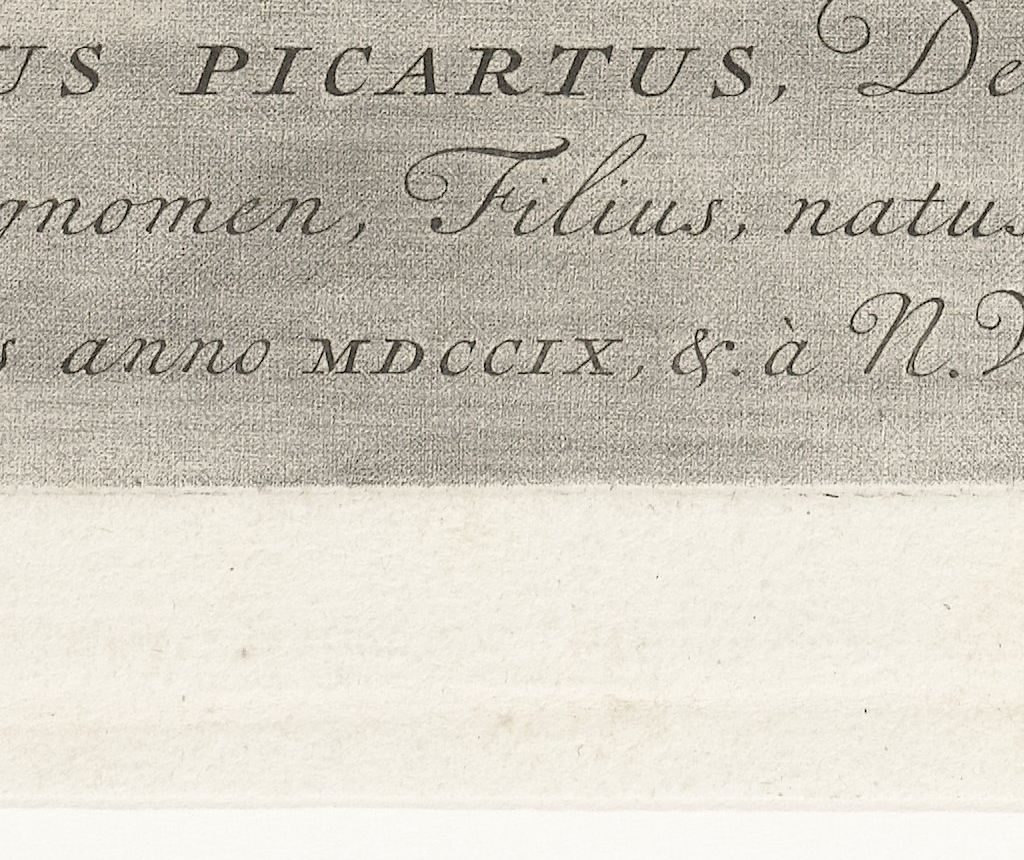 US PICARTUS, De
gnomen, Filius, natus
s anno MDCCIX, &. à N. V